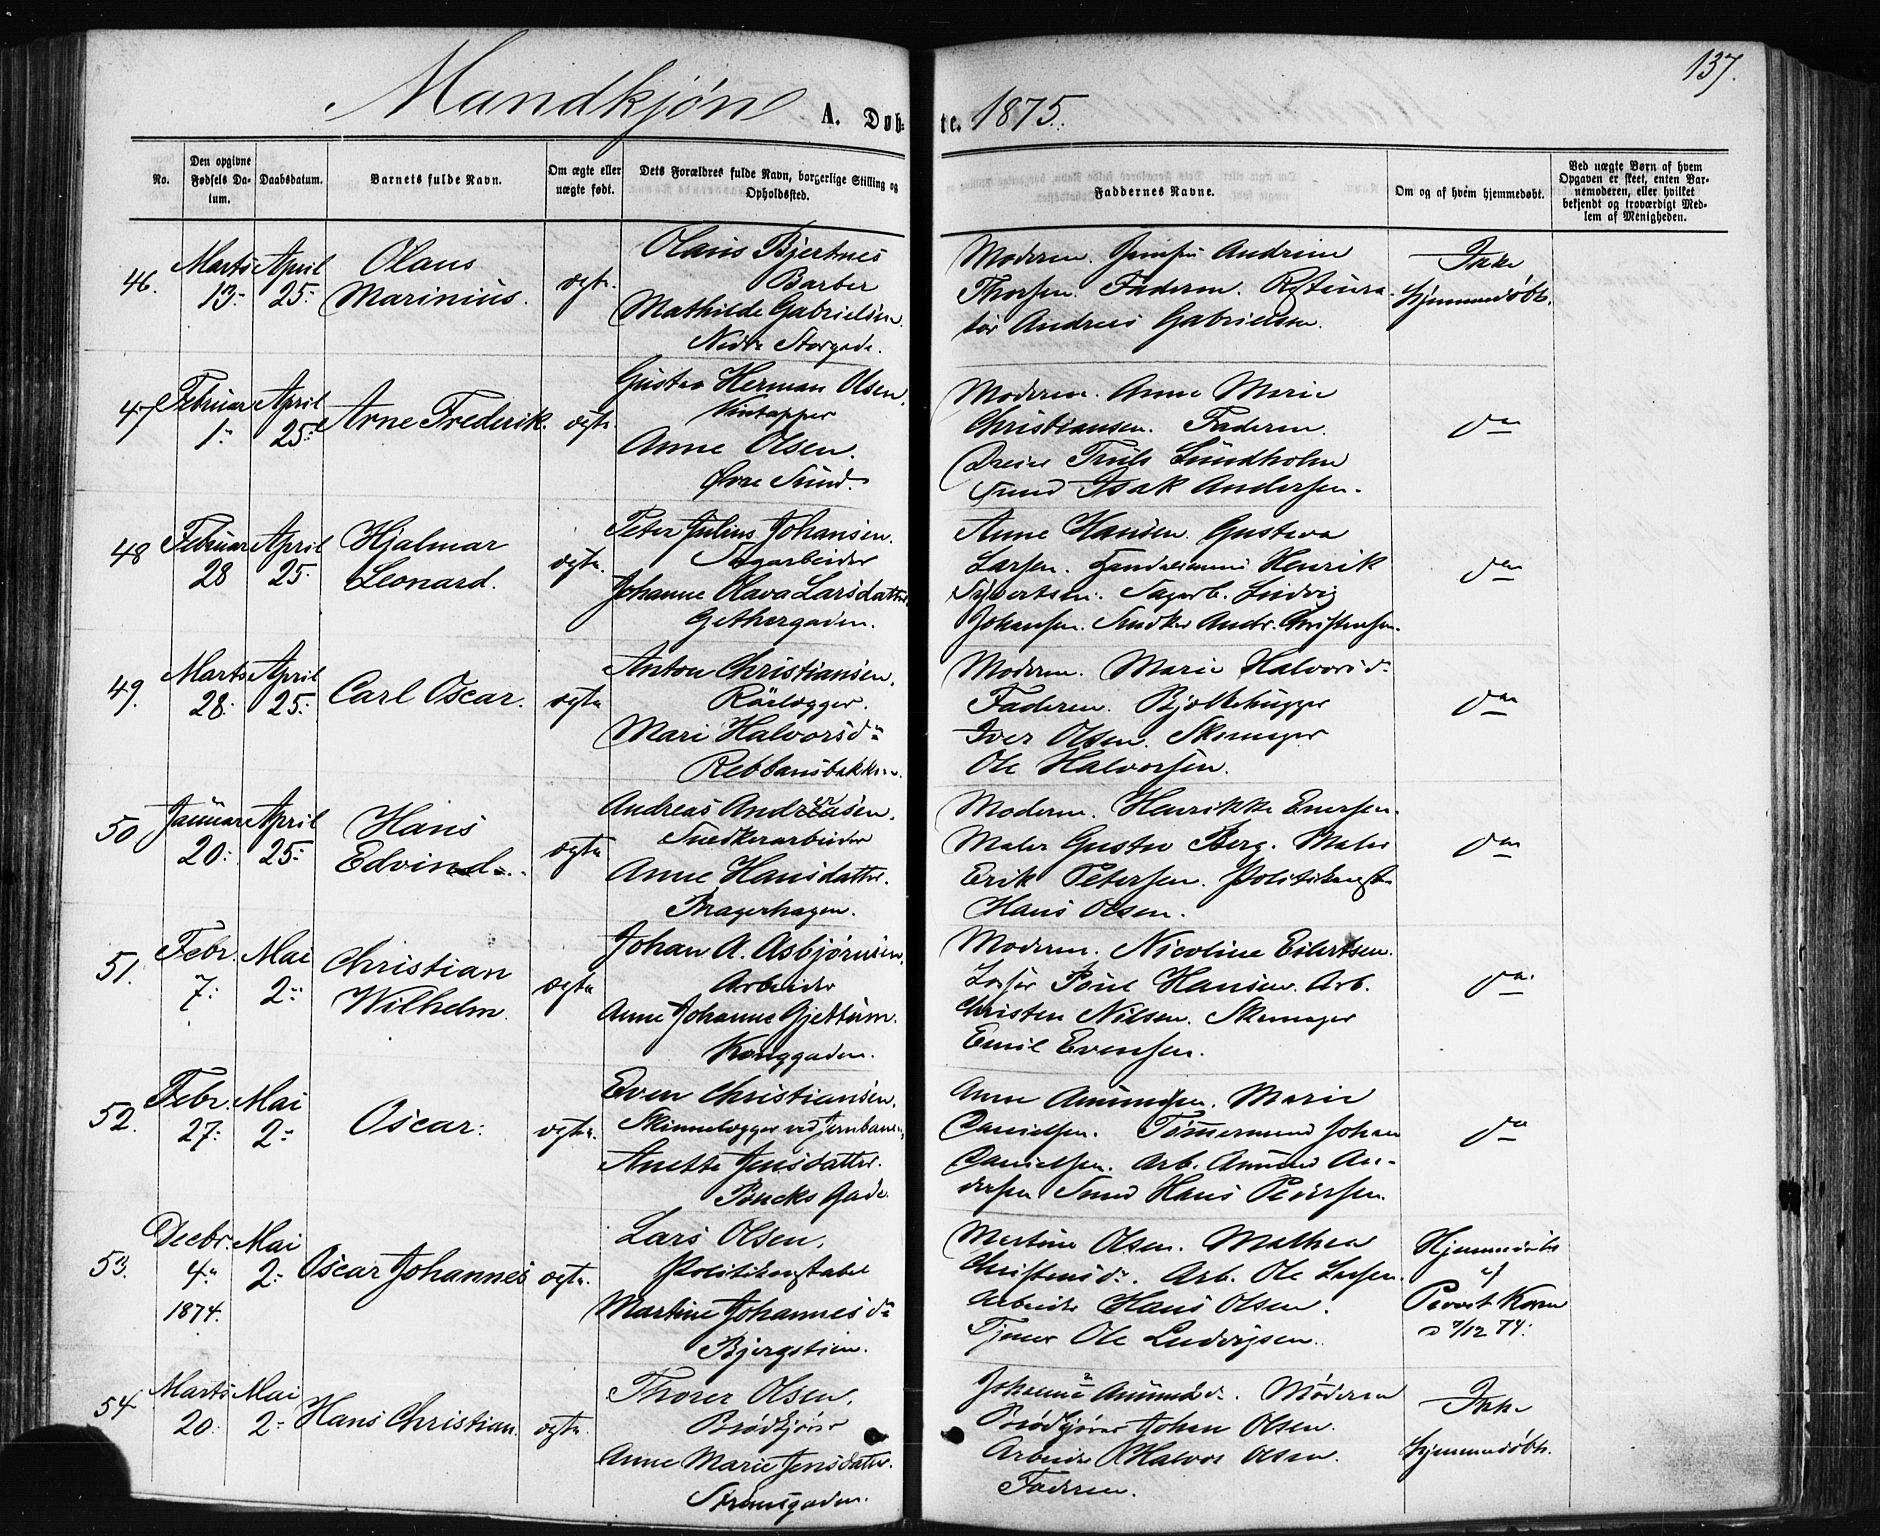 137.
Mandkjøn A. Døb- te. 1875.
No.
Den opgivne Fødsels Da- tum.
Daabsdatum.
Barnets fulde Navn.
Om ægte eller uægte født.
Dets Forældres fulde Navn, borgerlige Stilling og Opholdssted.
Faddernes Navne.
Om og af hvem hjemmedøbt.
Ved uægte Børn af hvem Opgaven er skeet, enten Bar- nemoderen, eller hvilket bekjendt og troværdigt Med- lem af Menigheden.
46. Marts 13. April 25.
Olaus
Marinius.
ægte.
Olaus Bjertnes
Barber
Mathilde Gabrielsen.
Nedre Storgade.
Moderen. Andrine
Thorsen. Faderen.
Andreas Gabrielsen.
Ikke
hjemmedøbt.
47. Februar 1. April 25.
Arne Frederik.
ægte.
Gustav Herman Olsen.
Vintapper
Anne Olsen.
Øvre Sund.
Moderen. Anne Marie
Christiansen. Faderen.
Dreier Truls Lundholm
Isak Andersen.
do
48 Februar 28 April 25.
Hjalmar
Leonard.
ægte.
Peter Julius Johansen.
Sagarbeider
Johanne Olava Larsdatter
Gethergaden.
Anne Hansen. Gustava
Larsen. Henrik
Syvertsen. Sagarb. Ludvig
Johansen. Snedker Andr. Christensen.
do
49. Marts 28. April 25.
Carl Oscar.
ægte
Anton Christiansen.
Rørlægger.
Mari Halvorsd.
Rebbansbakken.
Moderen. Marie Halvorsd.
Faderen. Bjelkehugger
Iver Olsen. Skomager
Ole Halvorsen.
do
50 Januar 20. April 25.
Hans
Edvin
ægte
Andreas Andersen.
Snedkerarbeider
Anne Hansdatter.
Bragerhagen.
Moderen. Henrikke Evensen.
Maler Gustav Berg. Maler
Erik Petersen. Politikonst.
Hans Olsen.
do
51. Febr. 7. Mai 2.
Christian
Wilhelm.
ægte
Johan A. Asbjørnsen.
Arbeider
Anne Johanne Gjettum.
Konggaden.
Moderen. Nicoline Eilertsen.
Poul Hansen. Arb.
Christen Nilsen. Skomager
Emil Evensen.
do
52. Febr. 27. Mai 2.
Oscar.
ægte.
Even Christiansen.
Skinnelægger ved Jernbanen
Anette Jensdatter.
Boucks Gade.
Anne Amundsen. Marie
Danielsen. Tømmermand Johan
Danielsen. Arb. Amund An-
dersen Hans Pedersen.
do
53. Decbr. 4. 1874. Mai 2.
Oscar Johannes
ægte.
Lars Olsen.
Politikonstabel
Martine Johannesd.
Bjergstien.
Martine Olsen. Mathea
Christensd. Arb. Ole Larsen.
Arbeider Hans Olsen.
Tjener Ole Ludvigsen.
Hjemmedøbt
af
Provst Koren
d 7/12 74.
54 Marts 20. Mai 2.
Hans Christian.
ægte.
Thorer Olsen.
Brødkjører
Anne Marie Jensdatter.
Strømsgaden.
Johanne Amundsd. Moderen
Brødkjører Johan Olsen.
Arbeider Halvor Olsen.
Faderen.
Ikke
hjemmedøbt.